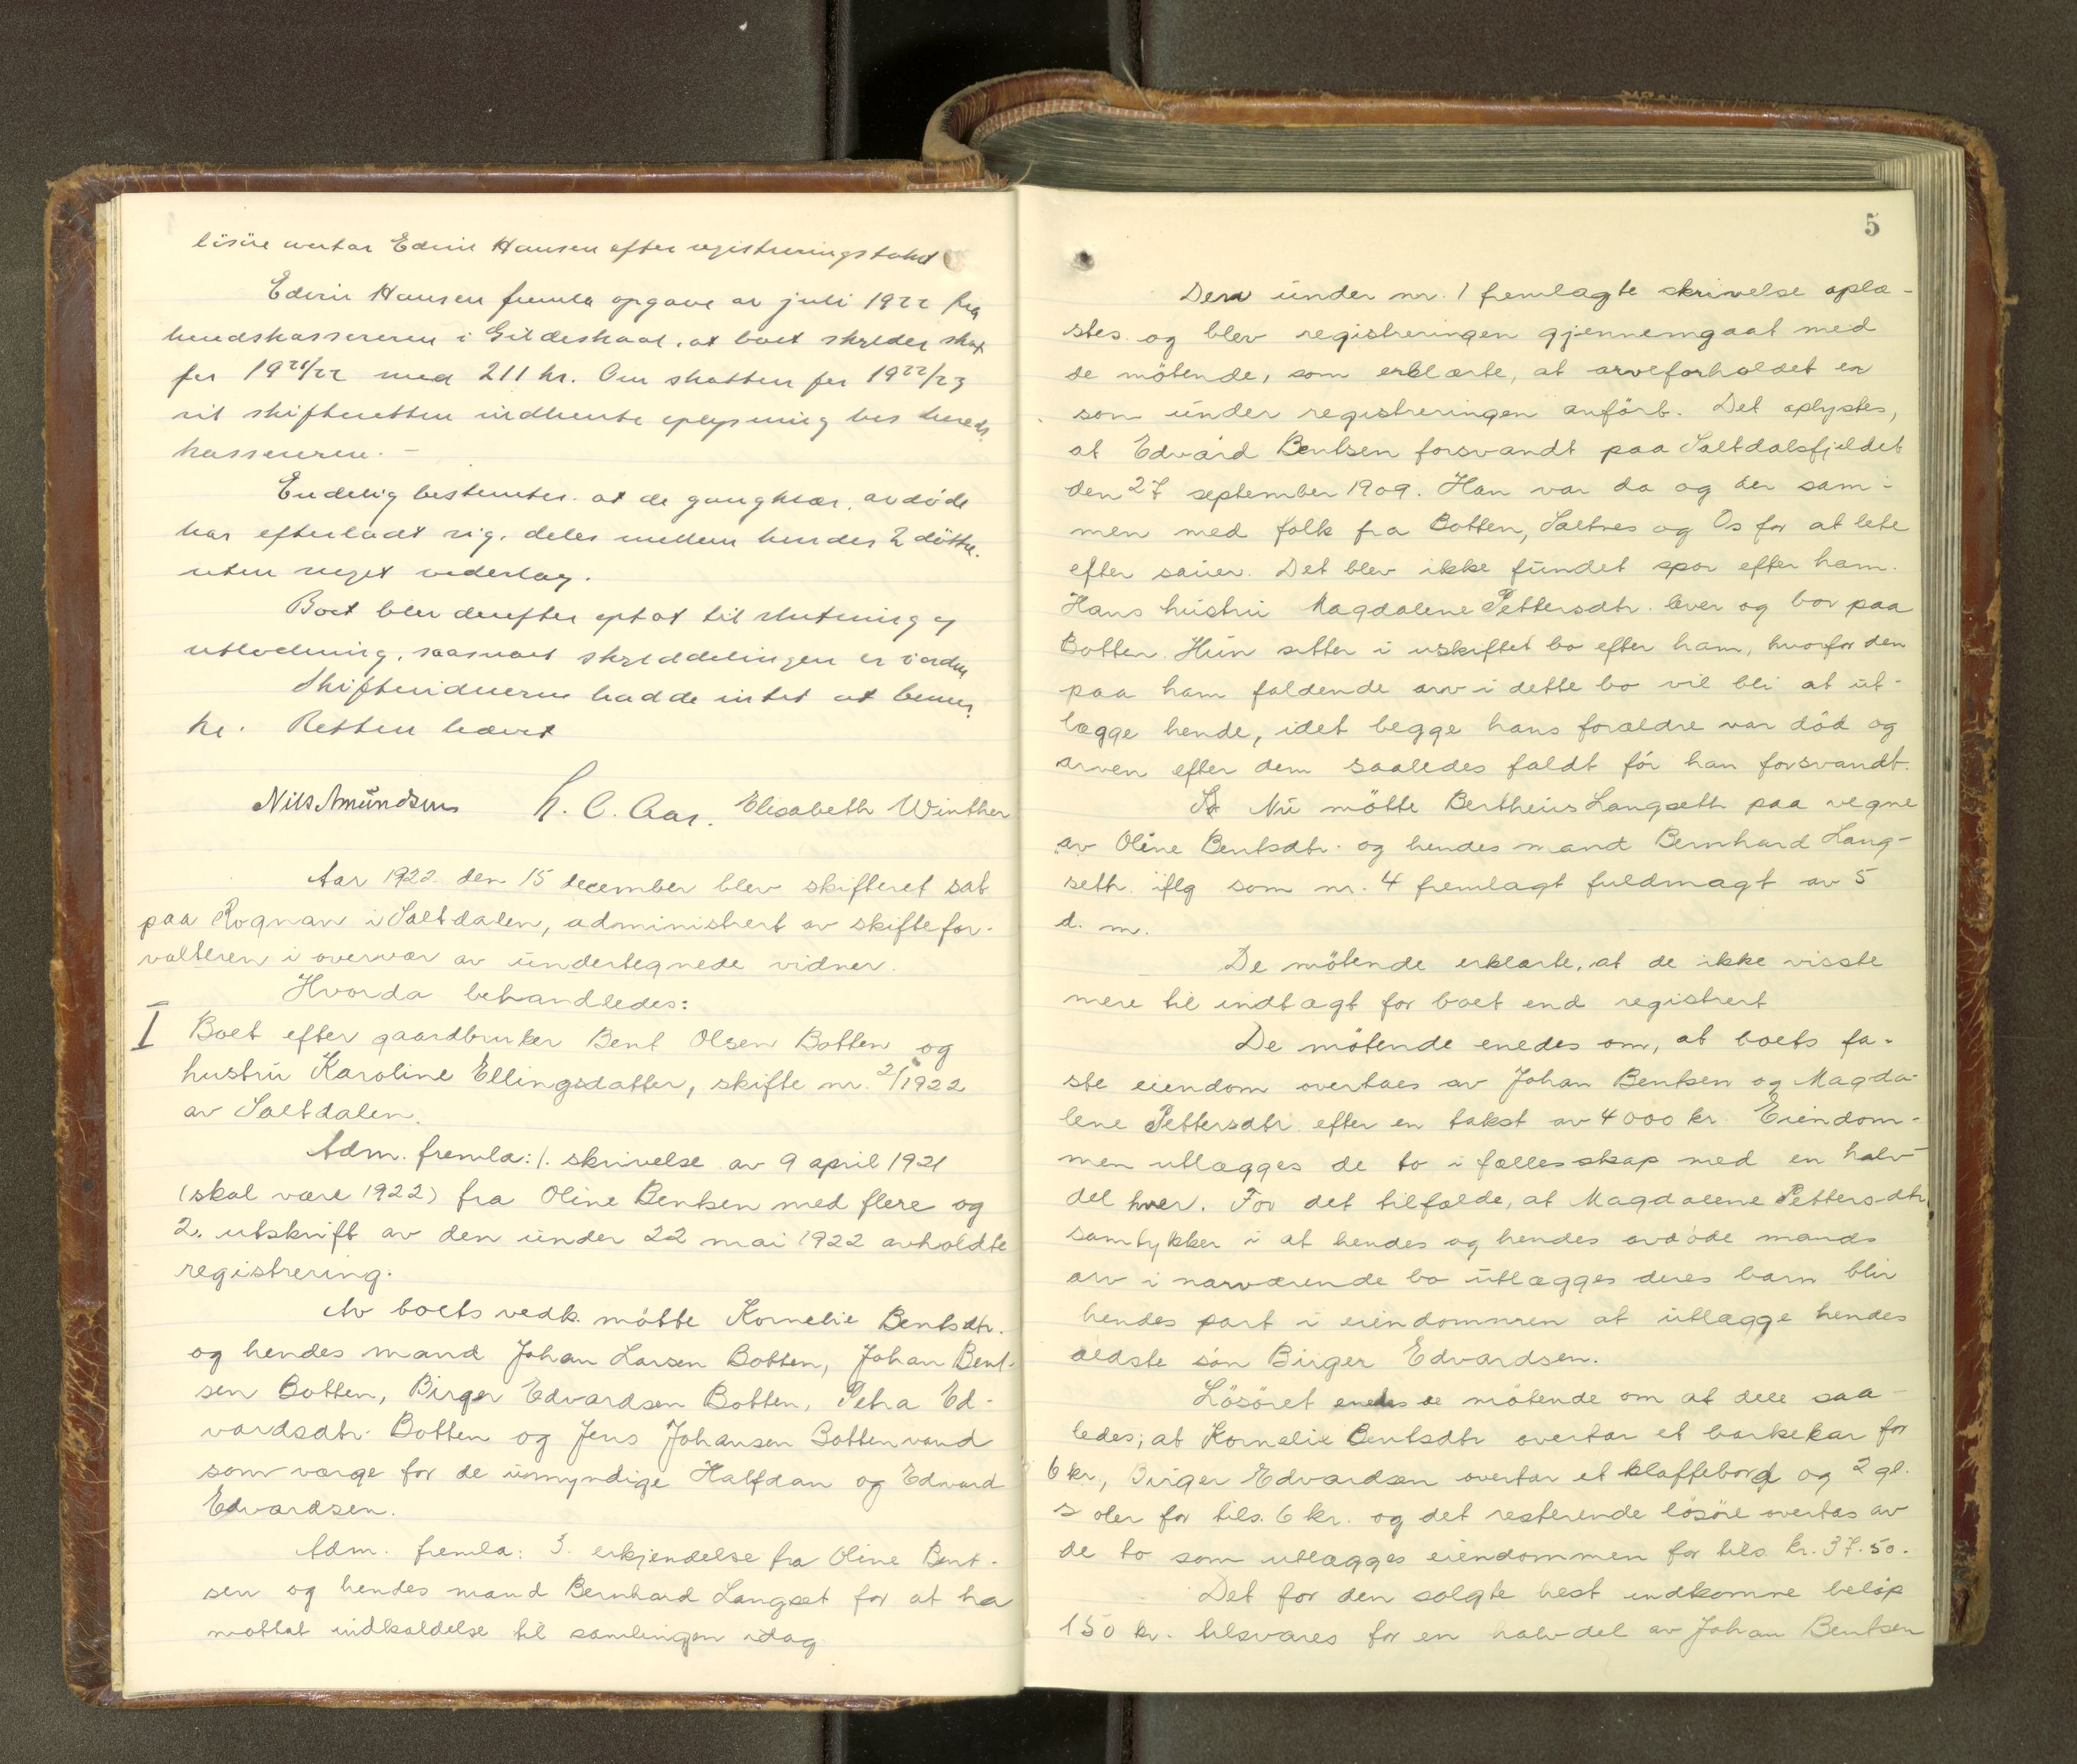 løsøre overtar Edvin Hansen efter registreringstakst
Edvin Hansen fremla opgave av juli 1922 fra
herredskassereren i Gildeskaal, at boet skylder skat
for 19²¹/22 med 211 kr. Om skatten for 19²²/23
vil skifteretten indhente oplysning hos herreds
kassereren. -
Endelig bestemtes at de gangklær, avdøde
har efterladt sig, deles mellem hendes 2 døttre.
uten noget vederlag.
Boet blev derefter optat til slutning og
utlodning, saasnart skylddelingen er i orden
Skiftevidnerne hadde intet at bemer,
ke. Retten hævet
Nils Amundsen H. C. Aas. Elisabeth Winther
Aar 1922 den 15 december blev skifteret sat
paa Rognan i Saltdalen, administrert av skiftefor-
valteren i overvær av undertegnede vidner.
Hvorda behandledes:
I Boet efter gaardbruker Bent Olsen Botten og
hustru Karoline Ellingsdatter, skifte nr. 2/1922
av Saltdalen.
Adm. fremla: 1. skrivelse av 9 april 1921
(skal være 1922) fra Oline Bentsen med flere og
2. utskrift av den under 22 mai 1922 avholdte
registrering.
Av boets vedk. møtte Kornelie Bentsdtr.
og hendes mand Johan Larsen Botten, Johan Bent-
sen Botten, Birger Edvardsen Botten, Petra Ed-
vardsdtr. Botten og Jens Johansen Bottenvand
som værge for de umyndige Halfdan og Edvard
Edvardsen.
Adm. fremla: 3. erkjendelse fra Oline Bent-
sen og hendes mand Bernhard Langset for at ha
mottat indkaldelse til samlingen idag
5
Den under nr. 1 fremlagte skrivelse oplæ-
stes og blev registreringen gjennemgaat med
de møtende, som erklærte, at arveforholdet er
som under registreringen anført. Det oplystes,
at Edvard Bentsen forsvandt paa Saltdalsfjeldet
den 27 september 1909. Han var da og der sam-
men med folk fra Botten, Saltnes og Os for at lete
efter sauer. Det blev ikke fundet spor efter ham.
Hans hustru Magdalene Pettersdtr. lever og bor paa
Botten. Hun sitter i uskiftet bo efter ham, hvorfor den
paa ham faldende arv i dette bo vil bli at ut-
lægge hende, idet begge hans forældre var død og
arven efter dem saaledes faldt før han forsvandt.
Nu møtte Bertheus Langseth paa vegne
av Oline Bentsdtr. og hendes mand Bernhard Lang-
seth iflg som nr. 4 fremlagt fuldmagt av 5
d. m.
De møtende erklærte, at de ikke visste
mere til indtægt for boet end registrert
De møtende enedes om, at boets fa-
ste eiendom overtaes av Johan Bentsen og Magda-
lene Pettersdtr. efter en takst av 4000 kr. Eiendom-
men utlægges de to i fællesskap med en halv-
del hver. For det tilfælde, at Magdalene Pettersdtr.
samtykker i at hendes og hendes avdøde mands
arv i nærværende bo utlægges deres barn blir
hendes part i eiendommen at utlægge hendes
ældste søn Birger Edvardsen.
Løsøret enedes de møtende om at dele saa-
ledes; at Kornelie Bentsdtr overtar et barkekar for
6 kr., Birger Edvardsen overtar et klaffebord og 2 gl.
stoler for tils. 6 kr. og det resterende løsøre overtas av
de to som utlægges eiendommen for tils. kr. 37.50.
Det for den solgte hest indkomne beløp
150 kr. tilsvares for en halvdel av Johan Bentsen